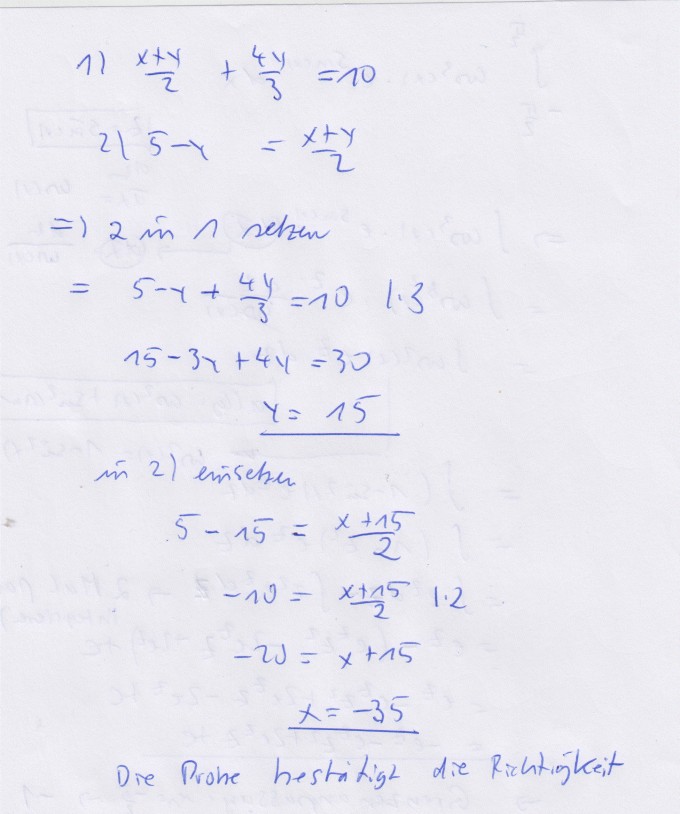 1) x+y/2 + 4y/3 = 10
2) 5-y = x+y/2
=) 2 in 1 setzen
= 5-y + 4y/3 = 10 |·3
15-3y+4y = 30
y = 15
in 2) einsetzen
5-15 = x+15/2
-10 = x+15/2 |·2
-20 = x+15
x = -35
Die Probe bestätigt die Richtigkeit